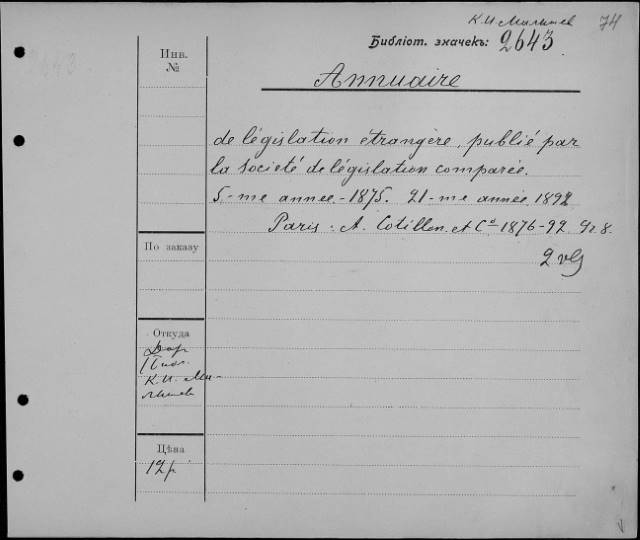 К.И. Малышев 74
Библіот. значекъ: 2643
Инв.
№
Annuaire
de législation étrangère, publié par
la societé de législation comparée.
5-me annee-1875. 21-me année 1892
Paris: A. Cotillon et Cº 1876-92 gr 8.
По заказу
2 vol
Откуда
Дар
К.И. Ма-
лышев
Цѣна
12р